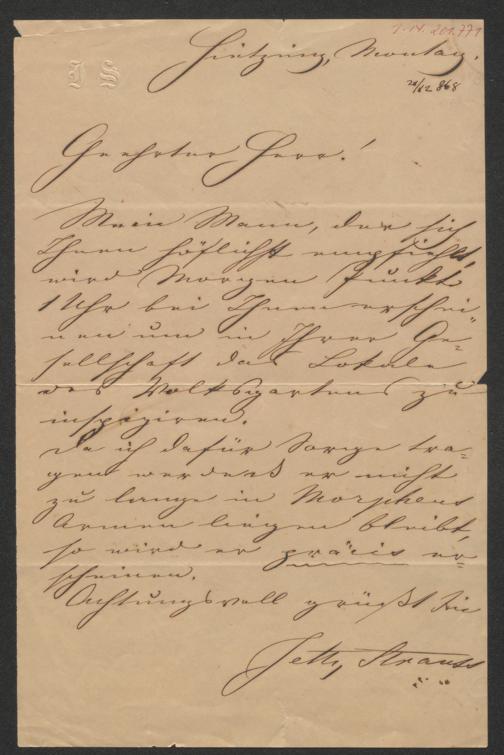 I.N. 201.771
JS
Hietzing, Montag.
21/12 868
Geehrter Herr!
Mein Mann, der sich
Ihnen höflichst empfiehlt,
wird Morgen Punkt
1 Uhr bei Ihnen erschei-
nen um in Ihrer Ge-
sellschaft das Lokale
des Volksgartens zu
inspiziren.
Da ich dafür Sorge tra-
gen werde er nicht
zu lange in Morpheus
Armen liegen bleibt,
so wird er präcis er-
scheinen.
Achtungsvoll grüßt Sie
Jetty Strauss